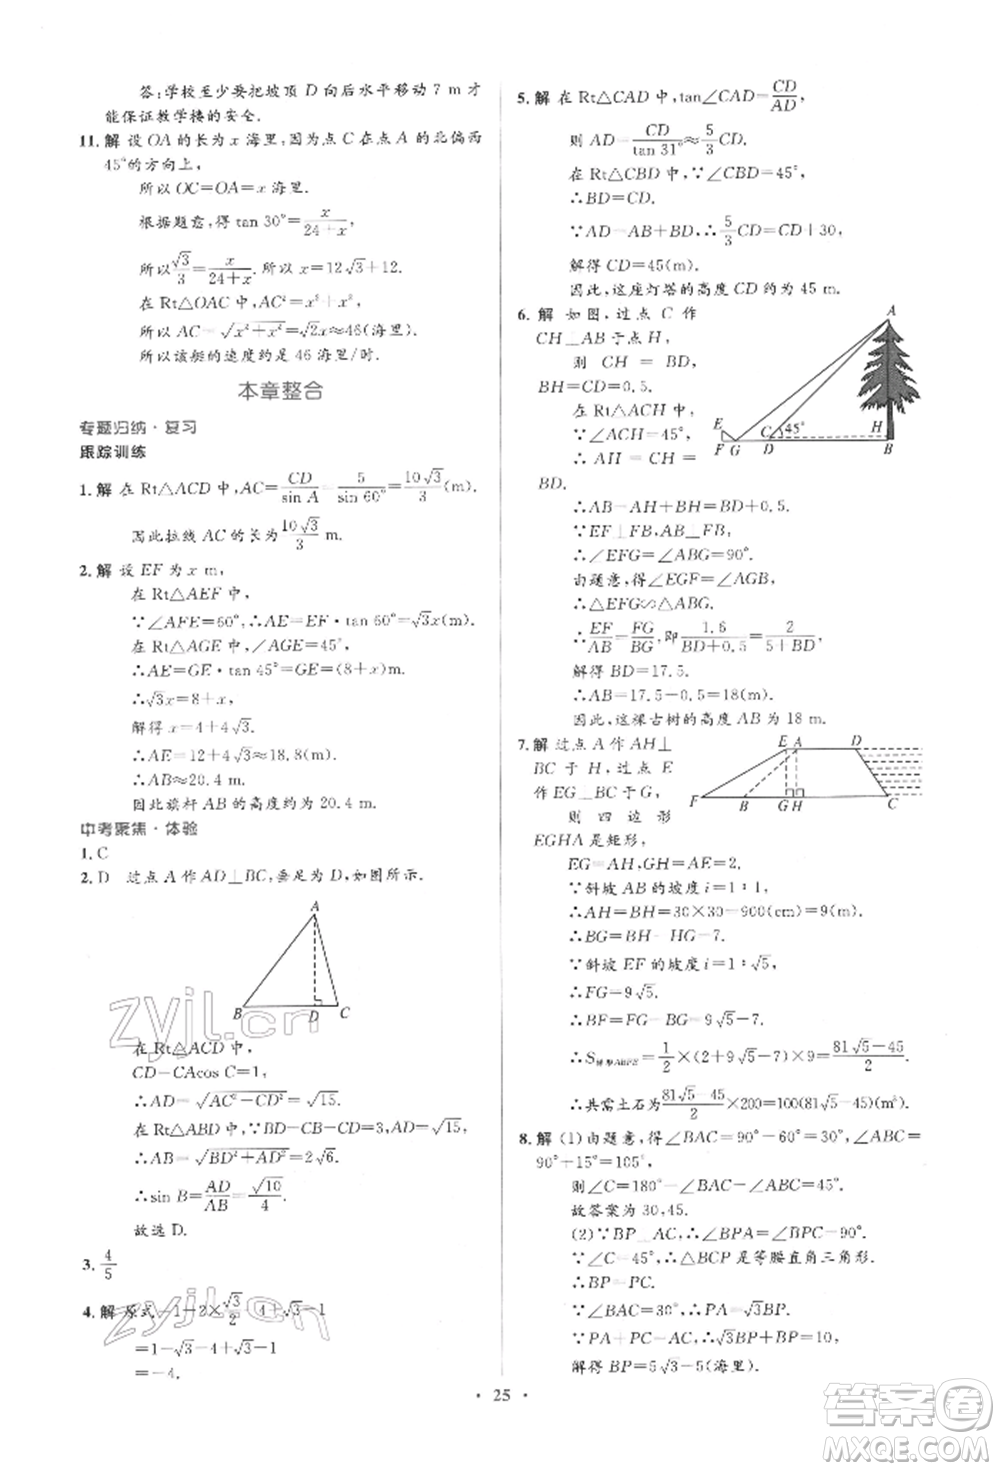 答:学校至少要把坡顶 D 向后水平移动 7 m 才
能保证教学楼的安全.
11. 解 设 OA 的长为 x 海里,因为点 C 在点 A 的北偏西
45°的方向上,
所以 OC=OA=x 海里.
根据题意,得 tan 30°=x/(24+x),
所以√3/3=x/(24+x). 所以 x=12√3+12.
在 Rt△OAC 中,AC²=x²+x²,
所以 AC=√(x²+x²)=√2x≈46(海里).
所以该艇的速度约是 46 海里/时.
本章整合
专题归纳·复习
跟踪训练
1. 解 在 Rt△ACD 中,AC=CD/sin A=5/sin 60°=10√3/3(m).
因此拉线 AC 的长为10√3/3 m.
2. 解 设 EF 为 x m,
在 Rt△AEF 中,
∵∠AFE=60°,∴AE=EF·tan 60°=√3x(m),
在 Rt△AGE 中,∠AGE=45°,
∴AE=GE·tan 45°=GE=(8+x)m.
∴√3x=8+x,
解得 x=4+4√3.
∴AE=12+4√3≈18.8(m),
∴AB≈20.4 m.
因此旗杆 AB 的高度约为 20.4 m.
中考聚焦·体验
1. C
2. D 过点 A 作 AD⊥BC,垂足为 D,如图所示.
A
B D C
在 Rt△ACD 中,
CD=CAcos C=1,
∴AD=√(AC²-CD²)=√15.
在 Rt△ABD 中,
BD=CB-CD=3,AD=√15,
∴AB=√(BD²+AD²)=2√6.
∴sin B=AD/AB=√10/4.
故选 D.
3. 4/5
4. 解 原式=1-2×√3/2-4+√3-1
=1-√3-4+√3-1
=-4.
5. 解 在 Rt△CAD 中,tan∠CAD=CD/AD,
则 AD=CD/tan 31°≈5/3CD.
在 Rt△CBD 中,∵∠CBD=45°,
∴BD=CD.
∵AD=AB+BD,∴5/3CD=CD+30,
解得 CD=45(m).
因此,这座灯塔的高度 CD 约为 45 m.
6. 解 如图,过点 C 作
CH⊥AB于点 H,
则 CH=BD,
BH=CD=0.5.
在 Rt△ACH 中,
∵∠ACH=45°,
∴AH=CH=
BD.
∴AB=AH+BH=BD+0.5.
∵EF⊥FB,AB⊥FB,
∴∠EFG=∠ABG=90°.
由题意,得∠EGF=∠AGB,
∴△EFG∽△ABG,
∴EF/AB=FG/BG,即1.6/(BD+0.5)=2/(5+BD),
解得 BD=17.5,
∴AB=17.5+0.5=18(m).
因此,这棵古树的高度 AB 为 18 m.
A
E C 45° H
F G D B
7. 解 过点 A 作 AH⊥
BC 于 H,过点 E
作 EG⊥BC于 G,
则四边形
EGHA 是矩形,
EG=AH,GH=AE=2.
∵斜坡 AB 的坡度 i=1∶1,
∴AH=BH=30×30=900(cm)=9(m),
∴BG=BH-HG=7.
∵斜坡 EF 的坡度 i=1∶√5,
∴FG=9√5.
∴BF=FG-BG=9√5-7,
∴S梯形ABFE=1/2×(2+9√5-7)×9=(81√5-45)/2.
∴共需土石为(81√5-45)/2×200=100(81√5-45)(m³).
E A D
F B G H C
8. 解 (1)由题意,得∠BAC=90°-60°=30°,∠ABC=
90°+15°=105°,
则∠C=180°-∠BAC-∠ABC=45°.
故答案为 30,45.
(2)∵BP⊥AC,∴∠BPA=∠BPC=90°.
∵∠C=45°,∴△BCP 是等腰直角三角形.
∴BP=PC.
∵∠BAC=30°,∴PA=√3BP.
∵PA+PC=AC,∴√3BP+BP=10,
解得 BP=5√3-5(海里).
· 25 ·
zyjl.cn
zyjl.cn
答案圈
MXQE.COM